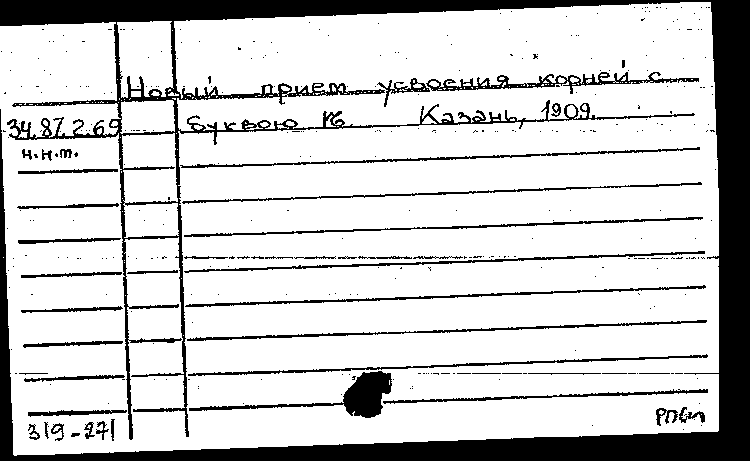 Новый прием усвоения корней с
34.87.2.69 буквою ѣ Казань, 1909.
н.н.т.
319-271